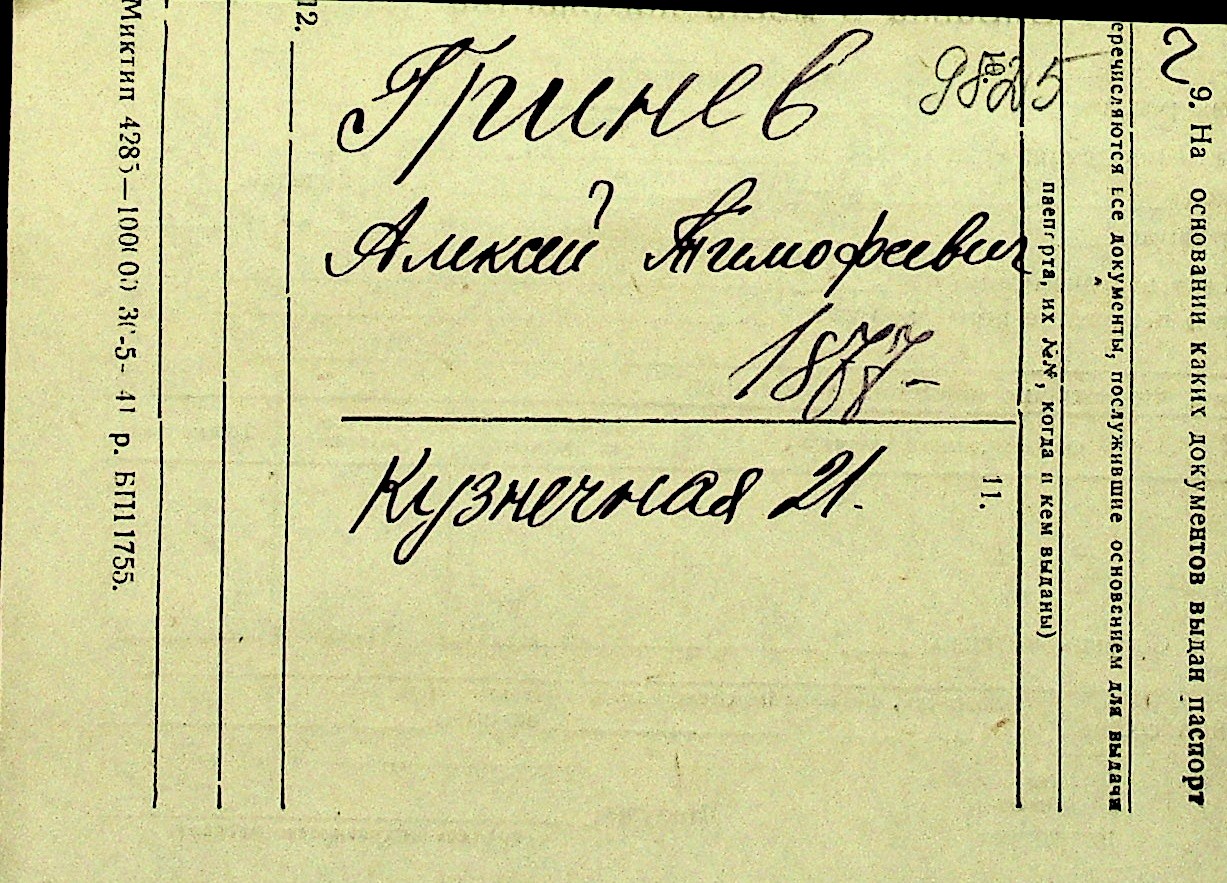 Гринев 9825
Алексей Тимофеевич
1877 –
Кузнечная 21.
9. На основании каких документов выдан паспорт
еречисляются все документы, послужившие основением для выдачи
паспорта, их №№, когда и кем выданы)
10.
11.
12.
Миктип 4285—100000 30-5- 41 р. БП11755.